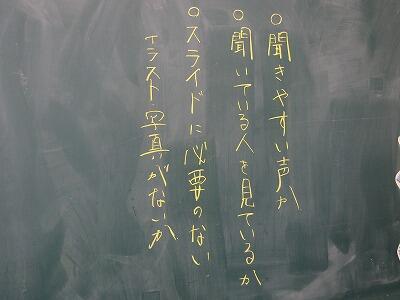 ○聞きやすい声か
○聞いている人を見ているか
○スライドに必要のない
イラスト・写真がないか